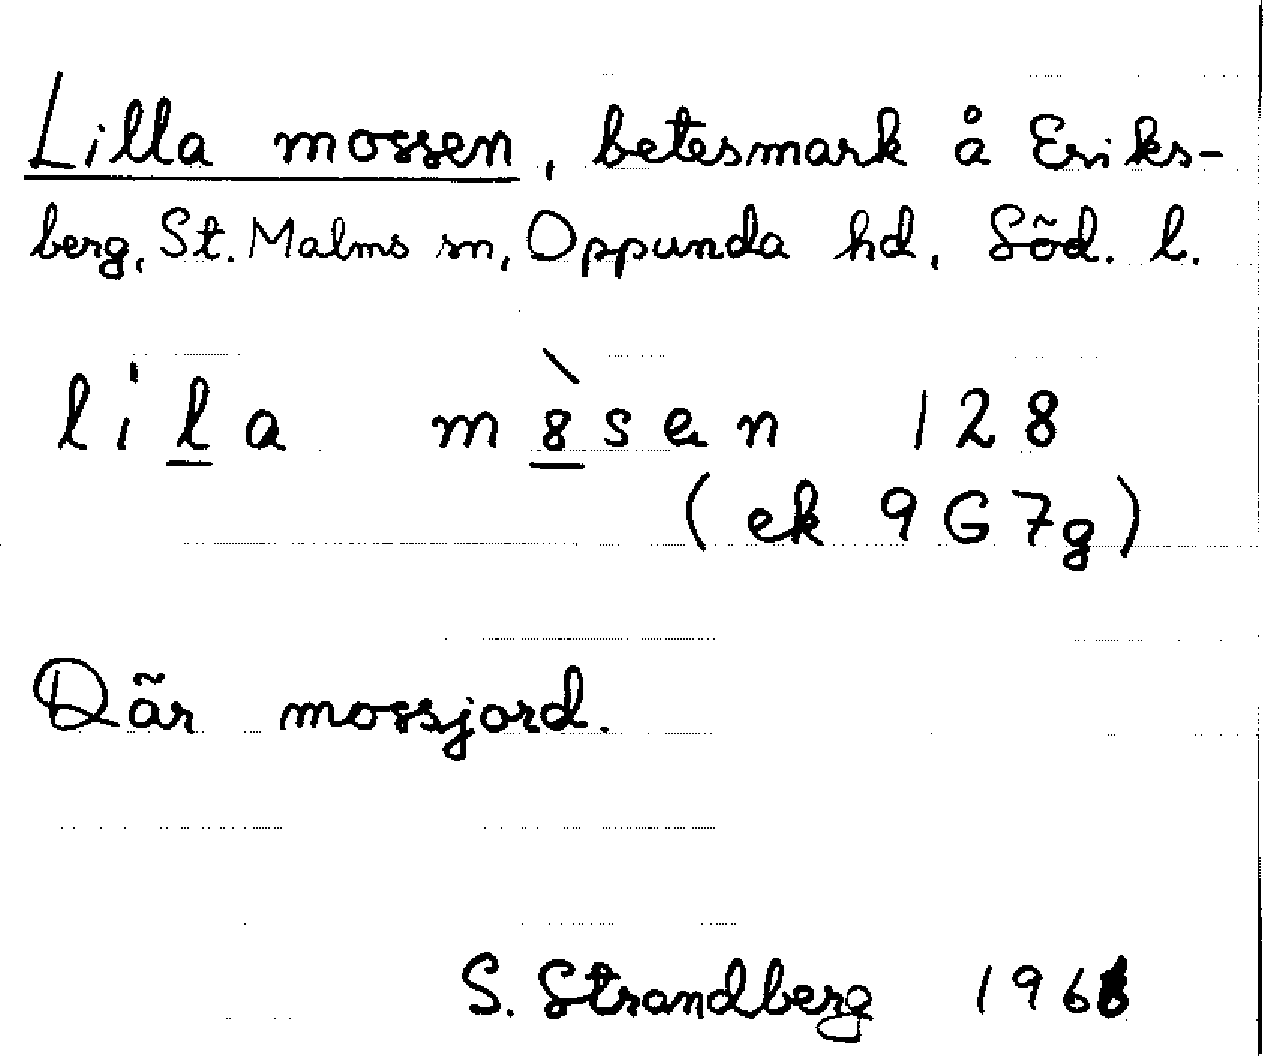 Lilla mossen, betesmark å Eriks-
berg, St. Malms sn, Oppunda hd, Söd. l.
li'la m8̀sen 128
(ek 9G7g)
Där mossjord.
S. Strandberg